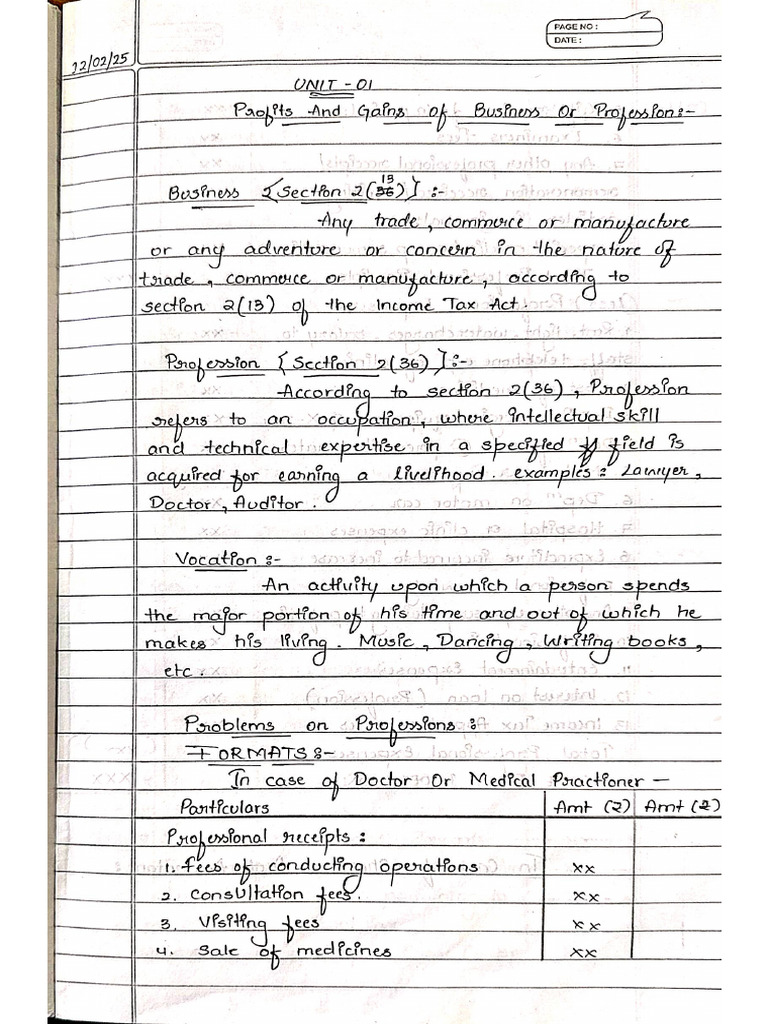 PAGE NO :
DATE :
12/02/25
UNIT - 01
Profits And Gains of Business Or Profession:-
Business {Section 2(13)} :-
Any trade, commerce or manufacture
or any adventure or concern in the nature of
trade, commerce or manufacture, according to
section 2(13) of the Income Tax Act.
Profession {Section 2(36)}:-
According to section 2(36), Profession
refers to an occupation, where intellectual skill
and technical expertise in a specified field is
acquired for earning a livelihood. examples: Lawyer,
Doctor, Auditor.
Vocation :-
An activity upon which a person spends
the major portion of his time and out of which he
makes his living. Music, Dancing, Writing books,
etc.
Problems on Professions :
FORMATS :-
In case of Doctor Or Medical Practioner —
Particulars Amt (₹) Amt (₹)
Professional receipts :
1. Fees of conducting operations xx
2. Consultation fees. xx
3. Visiting fees xx
4. Sale of medicines xx